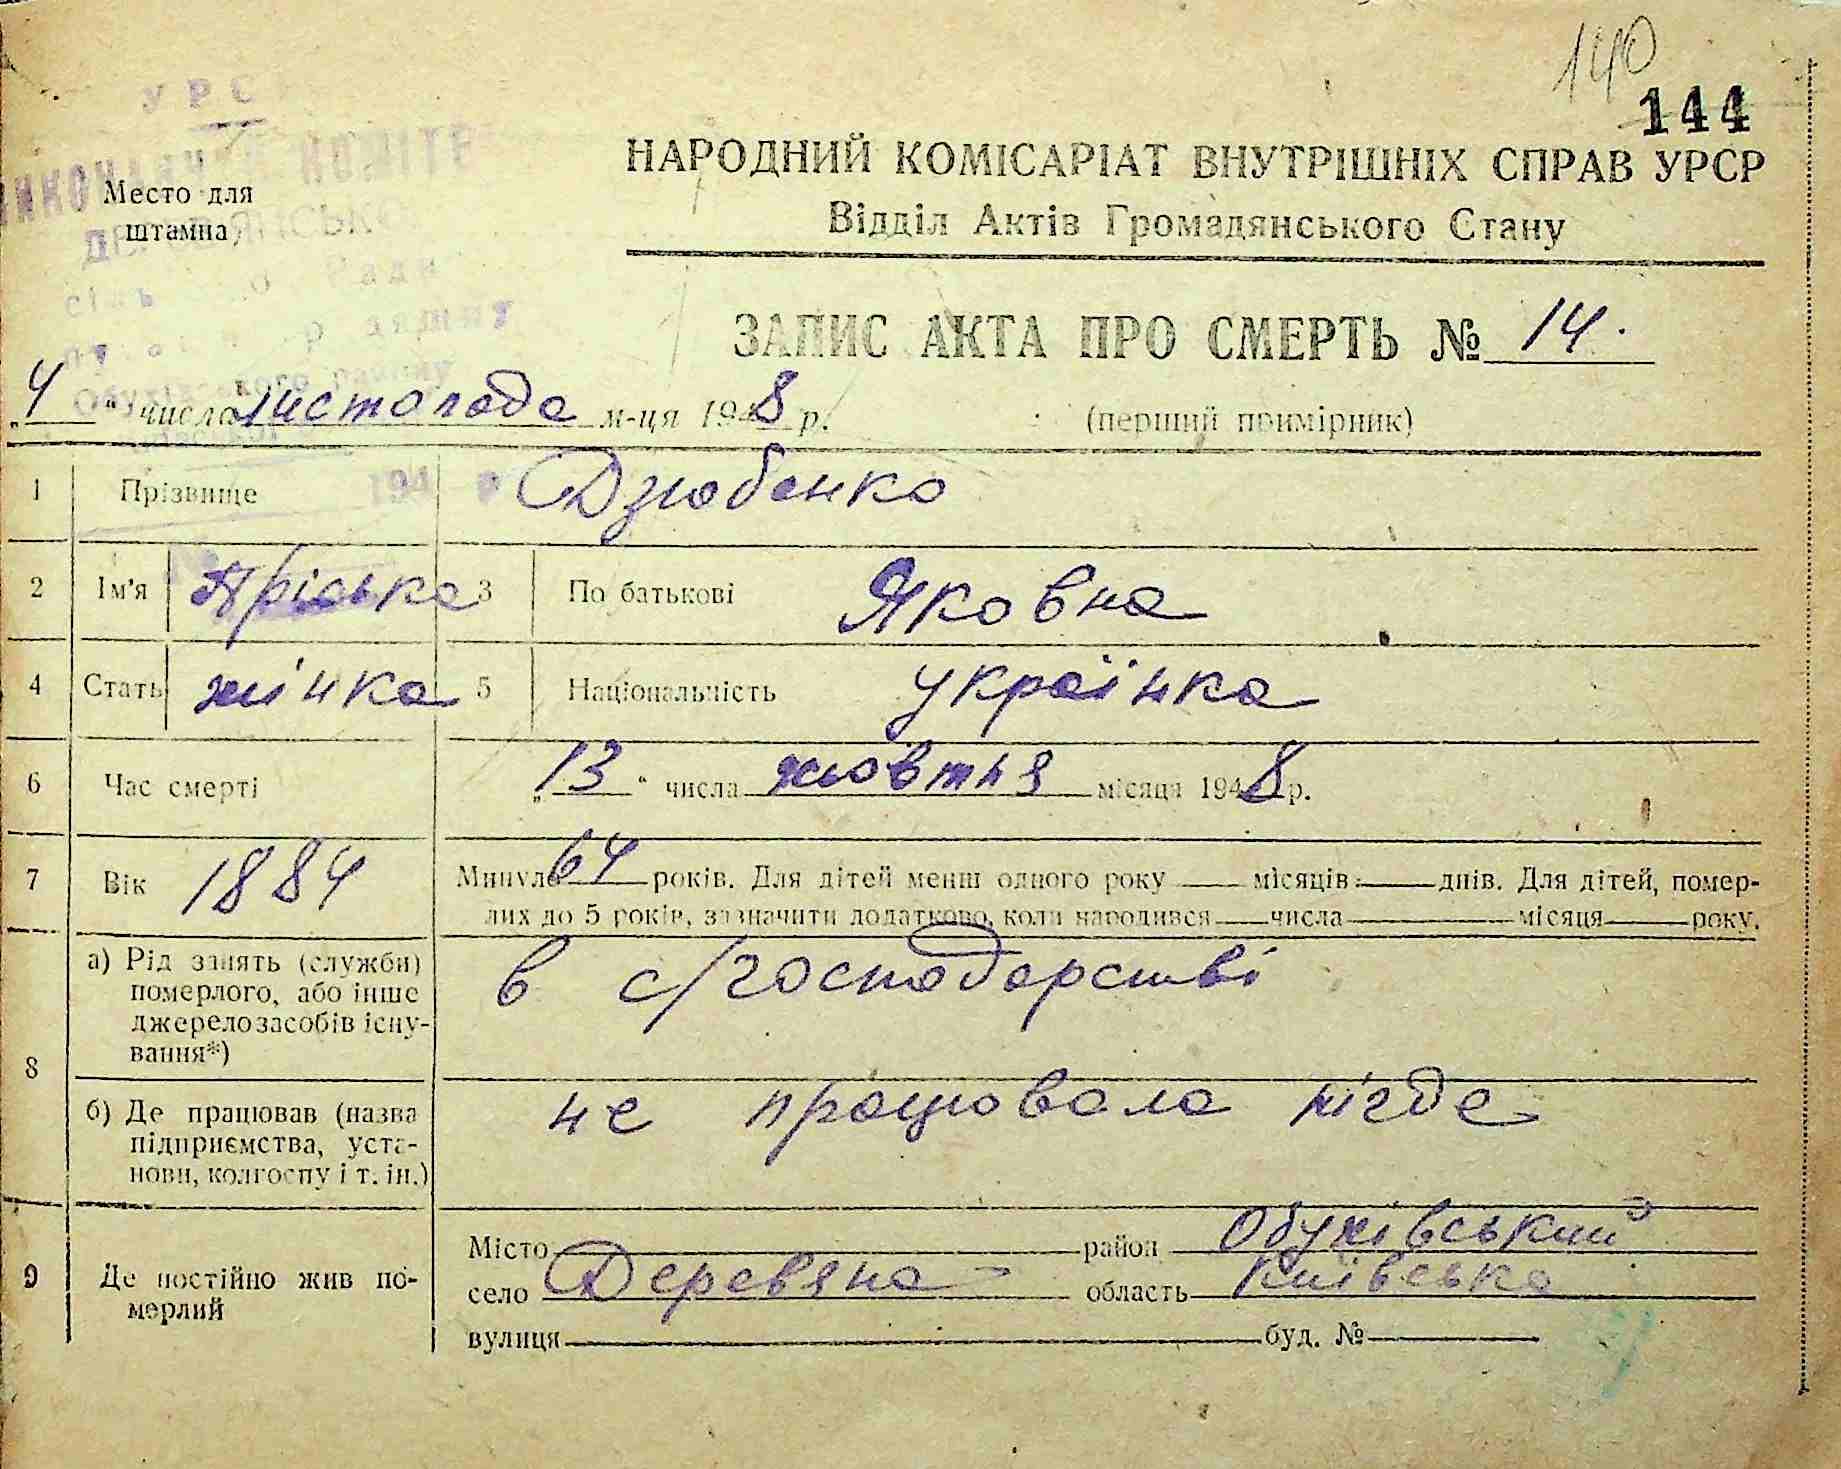 140
144
УРС
Место для
штампа
НАРОДНИЙ КОМІСАРІАТ ВНУТРІШНІХ СПРАВ УРСР
Відділ Актів Громадянського Стану
ЗАПИС АКТА ПРО СМЕРТЬ № 14.
„4“ числа листопада м-ця 1948 р. (перший примірник)
1 Прізвище Дзюбенко
2 Ім'я Пріська 3 По батькові Яковна
4 Стать жінка 5 Національність українка
6 Час смерті „13“ числа жовтня місяця 1948 р.
7 Вік 1884 Минуло 64 років. Для дітей менш одного року — місяців — днів. Для дітей, помер-
лих до 5 років, зазначити додатково, коли народився — числа — місяця — року.
8 а) Рід занять (служби)
померлого, або інше
джерело засобів існу-
вання*)
в с/господарстві
б) Де працював (назва
підприємства, уста-
нови, колгоспу і т. ін.)
не працювала нігде
9 Де постійно жив по-
мерлий
Місто — район Обухівський
село Деревяна область Київська
вулиця — буд. № —